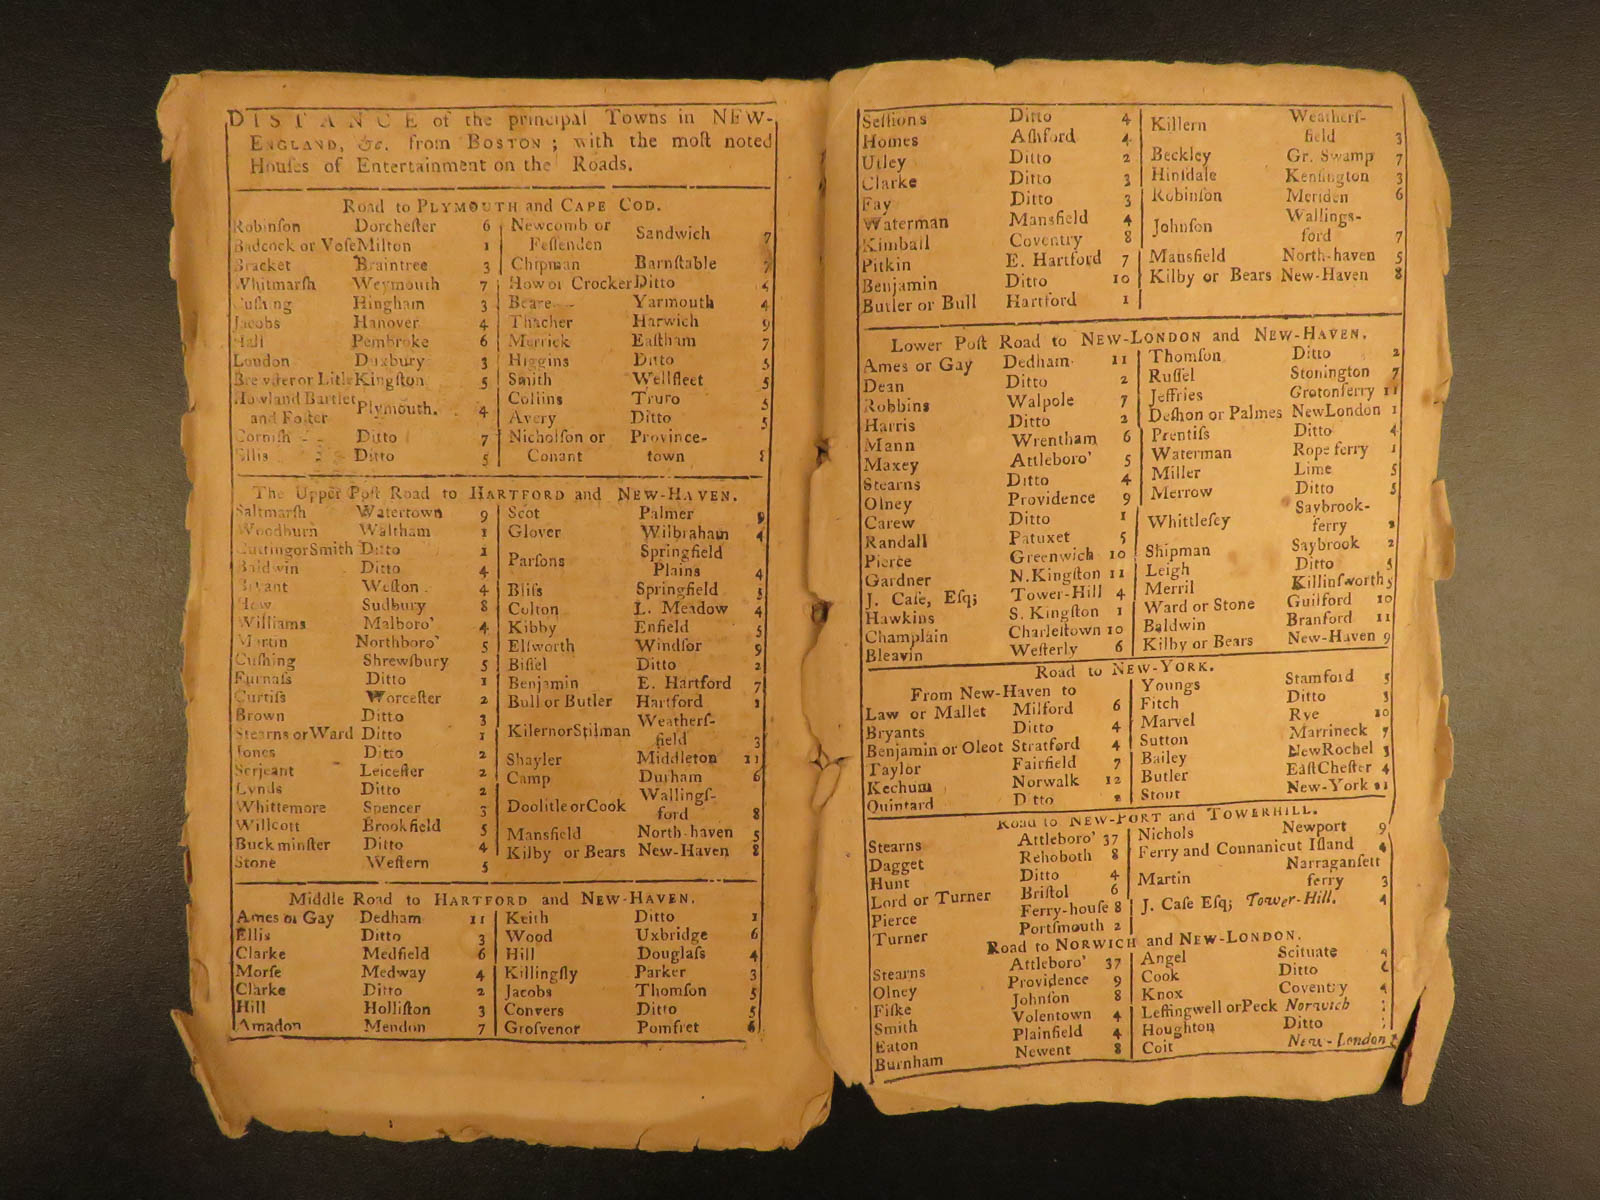 DISTANCE of the principal Towns in NEW-
ENGLAND, &c. from BOSTON ; with the moſt noted
Houſes of Entertainment on the Roads.
Road to PLYMOUTH and CAPE COD.
Robinſon Dorcheſter 6
Badcock or Voſe Milton 1
Bracket Braintree 3
Whitmarſh Weymouth 7
Cuſhing Hingham 3
Jacobs Hanover 4
Hall Pembroke 6
Loudon Duxbury 3
Kingſton 5
Howland Bartlet
and Foſter Plymouth. 4
Corniſh Ditto 7
Ellis Ditto 5
Newcomb or
Feſſenden Sandwich 7
Chipman Barnſtable 7
How or Crocker Ditto
Beare Yarmouth 4
Thacher Harwich 9
Merrick Eaſtham 7
Higgins Ditto 5
Smith Wellfleet 5
Collins Truro 5
Avery Ditto 5
Nicholſon or Province-
Conant town 8
The Upper Poſt Road to HARTFORD and NEW-HAVEN.
Saltmarſh Watertown 9
Woodburn Waltham 1
Cutting or Smith Ditto 1
Baldwin Ditto 4
Bryant Weſton 4
How Sudbury 8
Williams Malboro' 4
Martin Northboro' 5
Cuſhing Shrewſbury 5
Furnaſs Ditto 1
Curtiſs Worceſter 2
Brown Ditto 3
Stearns or Ward Ditto 1
Jones Ditto 2
Serjeant Leiceſter 2
Lynds Ditto 2
Whittemore Spencer 3
Willcott Brookfield 5
Buckminſter Ditto 4
Stone Weſtern 5
Scot Palmer 9
Glover Wilbraham 4
Parſons Springfield
Plains 4
Bliſs Springfield 3
Colton L. Meadow 4
Kibby Enfield 5
Elſworth Windſor 9
Biſſel Ditto 2
Benjamin E. Hartford 7
Bull or Butler Hartford 1
Kilern or Stilman Weatherſ-
field 3
Shayler Middleton 11
Camp Durham 6
Doolitle or Cook Wallingſ-
ford 8
Mansfield North-haven 5
Kilby or Bears New-Haven 8
Middle Road to HARTFORD and NEW-HAVEN.
Ames or Gay Dedham 11
Ellis Ditto 3
Clarke Medfield 6
Morſe Medway 4
Clarke Ditto 2
Hill Holliſton 3
Amadon Mendon 7
Keith Ditto 1
Wood Uxbridge 6
Hill Douglaſs 4
Killingſly Parker 3
Jacobs Thomſon 5
Convers Ditto 5
Groſvenor Pomfret 6
Seſſions Ditto 4
Homes Aſhford 4
Utley Ditto 2
Clarke Ditto 3
Fay Ditto 3
Waterman Mansfield 4
Kimball Coventry 8
Pitkin E. Hartford 7
Benjamin Ditto 10
Butler or Bull Hartford 1
Killern Weatherſ-
field 3
Beckley Gr. Swamp 7
Hinſdale Kenſington 3
Robinſon Meriden 6
Johnſon Wallings-
ford 7
Mansfield North-haven 5
Kilby or Bears New-Haven 8
Lower Poſt Road to NEW-LONDON and NEW-HAVEN.
Ames or Gay Dedham 11
Dean Ditto 2
Robbins Walpole 7
Harris Ditto 2
Mann Wrentham 6
Maxey Attleboro' 5
Stearns Ditto 4
Olney Providence 9
Carew Ditto 1
Randall Patuxet 5
Pierce Greenwich 10
Gardner N. Kingſton 11
J. Caſe, Eſq; Tower-Hill 4
Hawkins S. Kingſton 1
Champlain Charleſtown 10
Bleavin Weſterly 6
Thomſon Ditto 2
Ruſſel Stonington 7
Jeffries Grotonferry 11
Deſhon or Palmes New London 1
Prentiſs Ditto 4
Waterman Rope ferry 1
Miller Lime 5
Merrow Ditto 5
Whittleſey Saybrook-
ferry 2
Shipman Saybrook 2
Leigh Ditto 5
Merril Killinſworth 5
Ward or Stone Guilford 10
Baldwin Branford 11
Kilby or Bears New-Haven 9
Road to NEW-YORK.
From New-Haven to
Law or Mallet Milford 6
Bryants Ditto 4
Benjamin or Oleot Stratford 4
Taylor Fairfield 7
Kechum Norwalk 12
Quintard Ditto 2
Youngs Stamford 5
Fitch Ditto 3
Marvel Rye 10
Sutton Marrineck 7
Bailey New Rochel 3
Butler Eaſt Cheſter 4
Stout New-York 21
Road to NEW-PORT and TOWERHILL.
Stearns Attleboro' 37
Dagget Rehoboth 8
Hunt Ditto 4
Lord or Turner Briſtol 6
Pierce Ferry-houſe 8
Turner Portſmouth 2
Nichols Newport 9
Ferry and Connanicut Iſland 4
Martin Narraganſett
ferry 3
J. Caſe Eſq; Tower-Hill. 4
Road to NORWICH and NEW-LONDON.
Stearns Attleboro' 37
Olney Providence 9
Fiſke Johnſon 8
Smith Volentown 4
Eaton Plainfield 4
Burnham Newent 8
Angel Scituate 4
Cook Ditto
Knox Coventry 4
Leffingwell or Peck Norwich
Houghton Ditto
Coit New-London